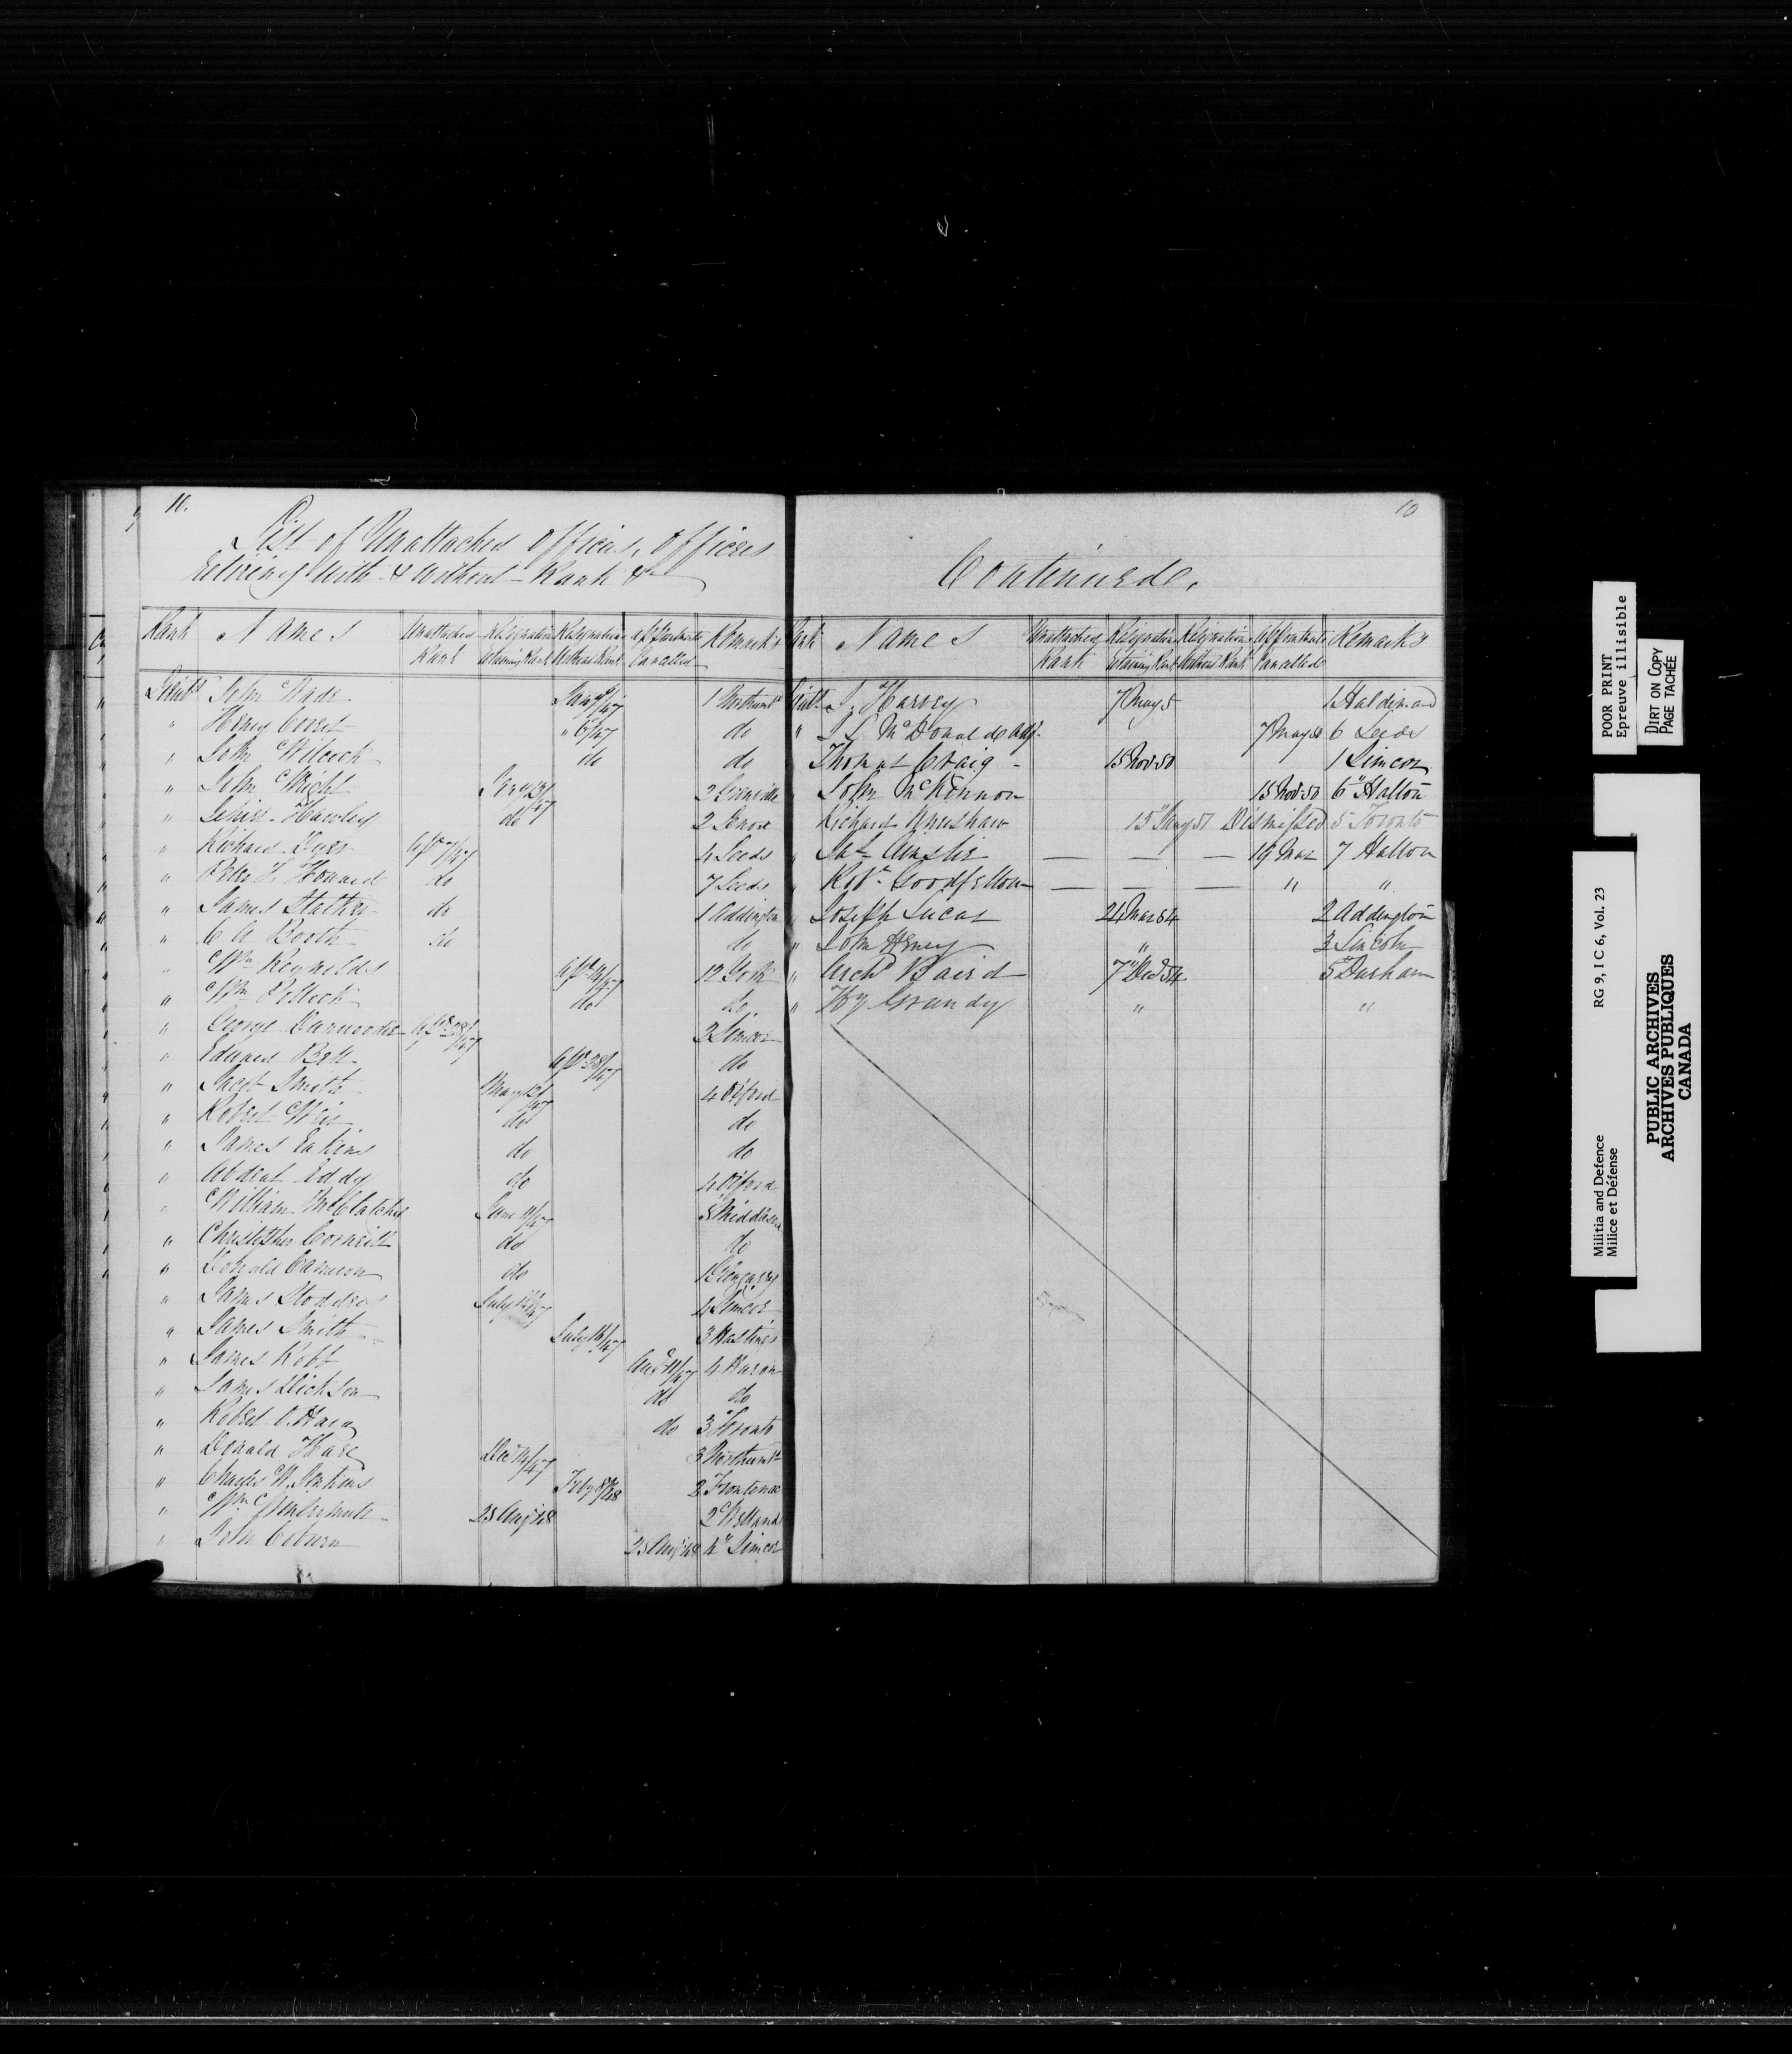 10.
List of Unattached Officers, Officers
retiring with & without Rank &c
Rank Names Unattached Rank Resignation retaining Rank Resignation without Rank Appointments Cancelled Remarks
Lieut John Wade Jany /47 1 Northumbd
" Henry " 6/47 do
" John Wilcock do do
" John Wright Jany /47 2 Grenville
" Hawley do 2 Lenox
" Richard Dyer Apl 7/47 4 Leeds
" Peter F. Howard do 7 Leeds
" James do 1 Addington
" C A Booth do do
" Wm Reynolds Apl 14/47 12 York
" Wm Pollock do do
" George Apl 28/47 2 Simcoe
" Edward Bell Apl 28/47 do
" Jacob Smith May /47 4 Oxford
" Robert Weir do do
" James Eakins do do
" Eddy do 4 Oxford
" William McClatchey June 11/47 5 Middlesex
" Christopher do do
" Donald Cameron do 1 Glengarry
" James Stoddres July /47 4 Simcoe
" James Smith July 16/47 3 Hastings
" James Robb Aug 11/47 4 Huron
" James Dickson do do
" Robert O.Hara do 3 Toronto
" Donald Hare Decr 14/47 3 Northumbd
" Charles W. Jenkins Feby 8/48 2 Frontenac
" Wm 23 Aug 48 2 Welland
" John Coburn 23 Aug 48 4" Simcoe
10
Continued.
Rank Names Unattached Rank Resignation retaining Rank Resignation without Rank Appointments Cancelled Remarks
Lieut J. Harvey 7 May 5 1 Haldimand
" J S McDonald Adj. 7 May 50 6 Leeds
Thomas Craig - 15 Nov 50 1 Simcoe
John McKinnon 15 Nov 50 6" Halton
Richard 15" May 51 Dismissed 5 Toronto
" Jas Ainslie — — — 19 Mar 7 Halton
" Robt. Goodfellow — — — " "
" Joseph Lucas 24 Mar 54 2 Addington
" John Henry " 3 Lincoln
" Archd Baird 7" Dec 54 5" Durham
" Hy Grandy " "
POOR PRINT
Epreuve illisible
DIRT ON COPY
PAGE TACHÉE
Militia and Defence RG 9, I C 6, Vol. 23
Milice et Défense
PUBLIC ARCHIVES
ARCHIVES PUBLIQUES
CANADA